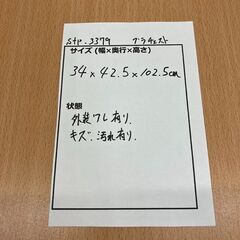 stp-3379 プラチェスト
サイズ(幅×奥行×高さ)
34×42.5×102.5cm
状態
外装ワレ有り.
キズ.汚れ有り.